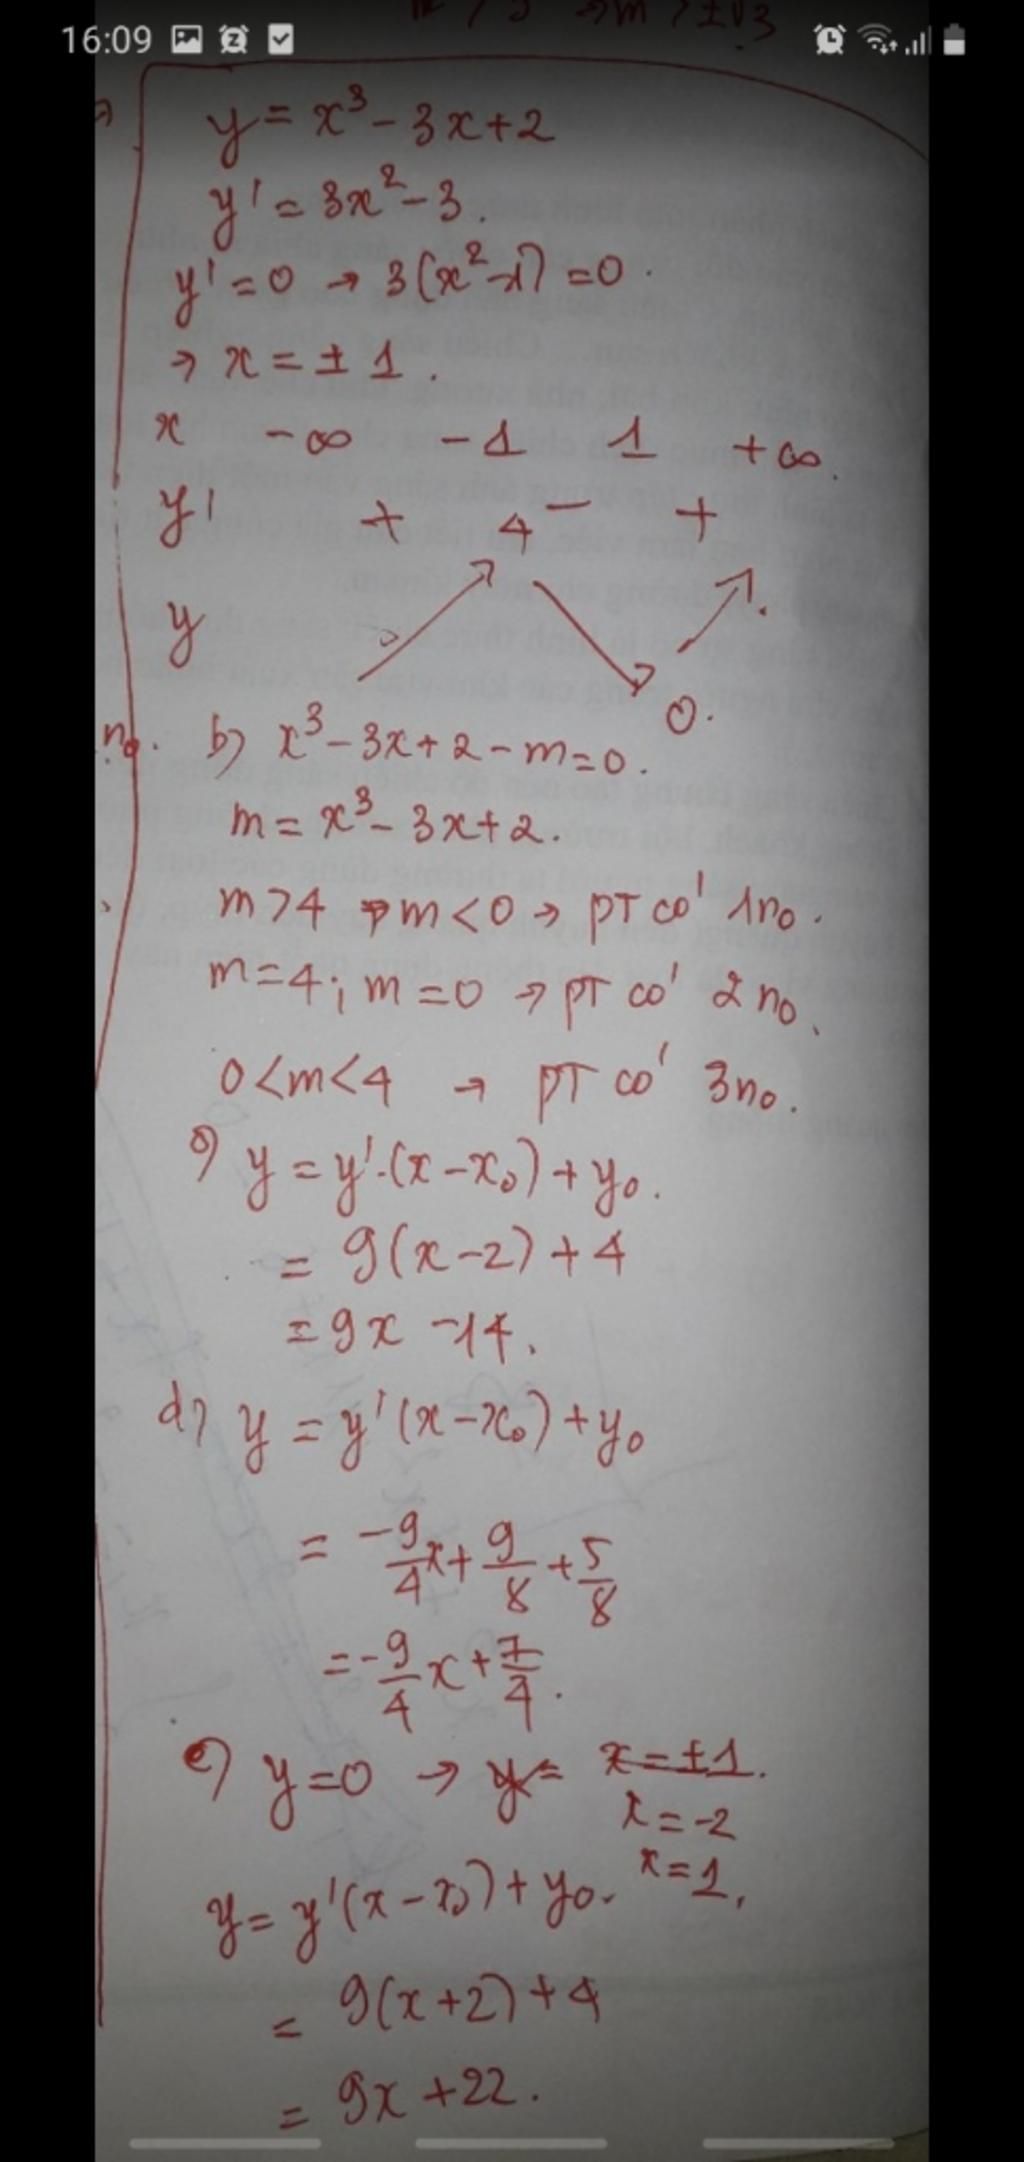 16:09
y = x³ - 3x + 2
y' = 3x² - 3.
y' = 0 → 3(x² - 1) = 0.
→ x = ± 1.
x -∞ -1 1 +∞.
y' + 4 - +
y
0.
n₀. b) x³ - 3x + 2 - m = 0.
m = x³ - 3x + 2.
m > 4 m < 0 → PT có 1n₀.
m = 4; m = 0 → PT có 2n₀.
0 < m < 4 → PT có 3n₀.
y = y'.(x - x₀) + y₀.
= 9(x - 2) + 4
= 9x - 14.
d) y = y'(x - x₀) + y₀
= -9/4 x + 9/8 + 5/8
= -9/4 x + 7/4.
e) y = 0 → y = x = ±1.
x = -2
x = 1.
y = y'(x - x₀) + y₀.
= 9(x + 2) + 4
= 9x + 22.